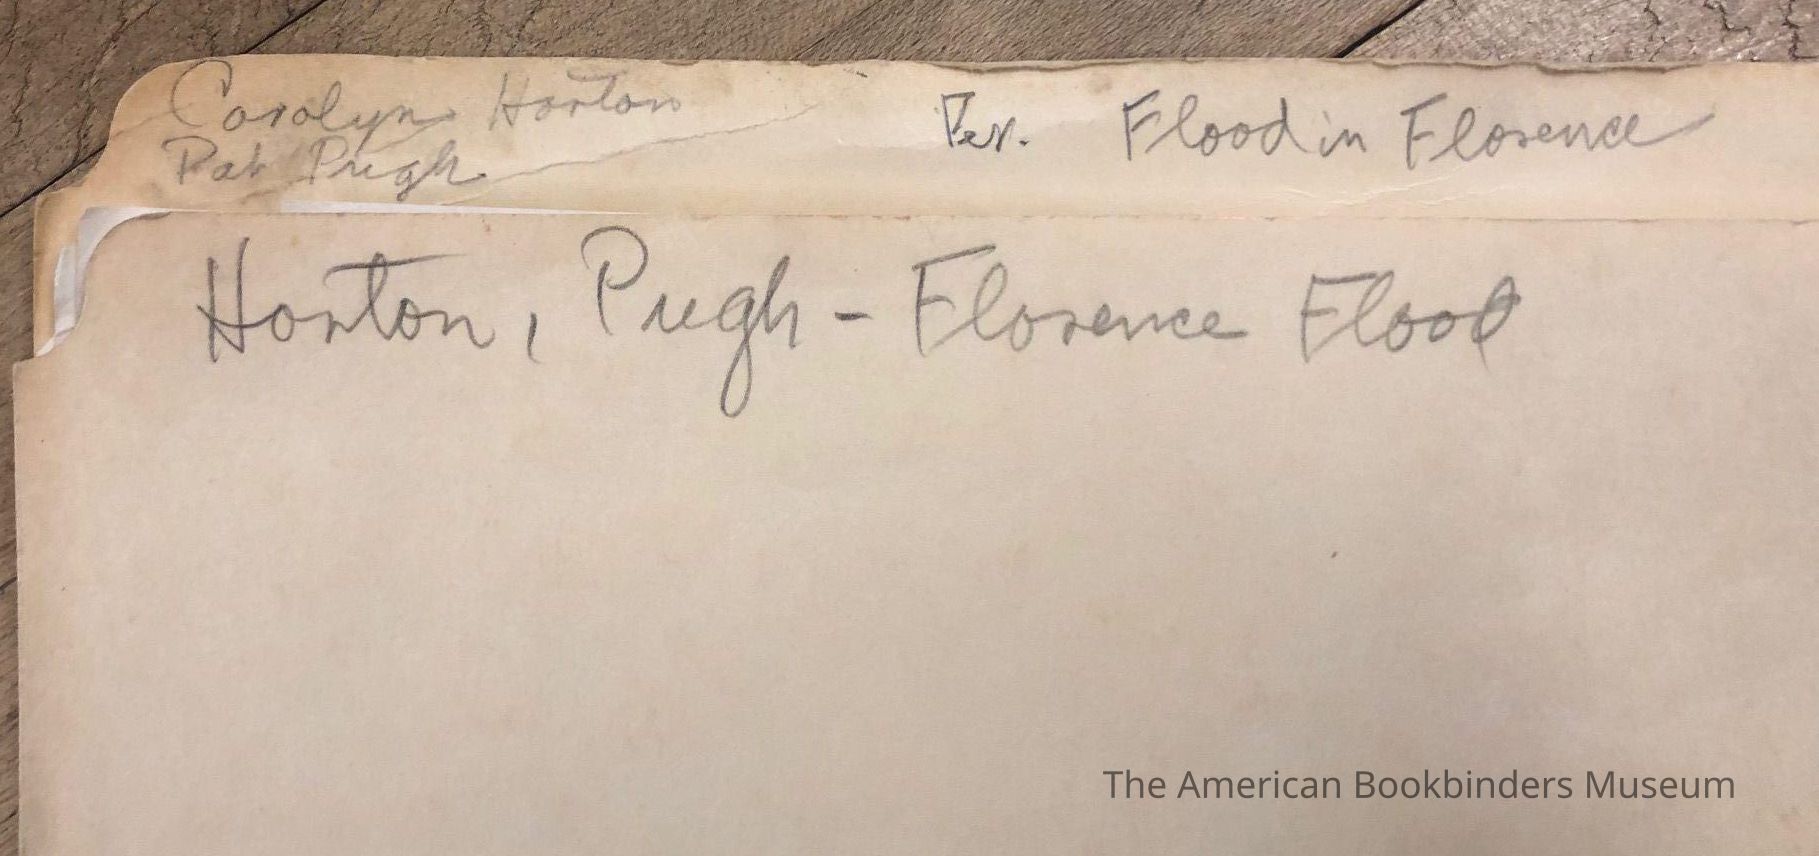 Carolyn Horton
Pat Pugh
Per. Flood in Florence
Horton, Pugh - Florence Flood
The American Bookbinders Museum